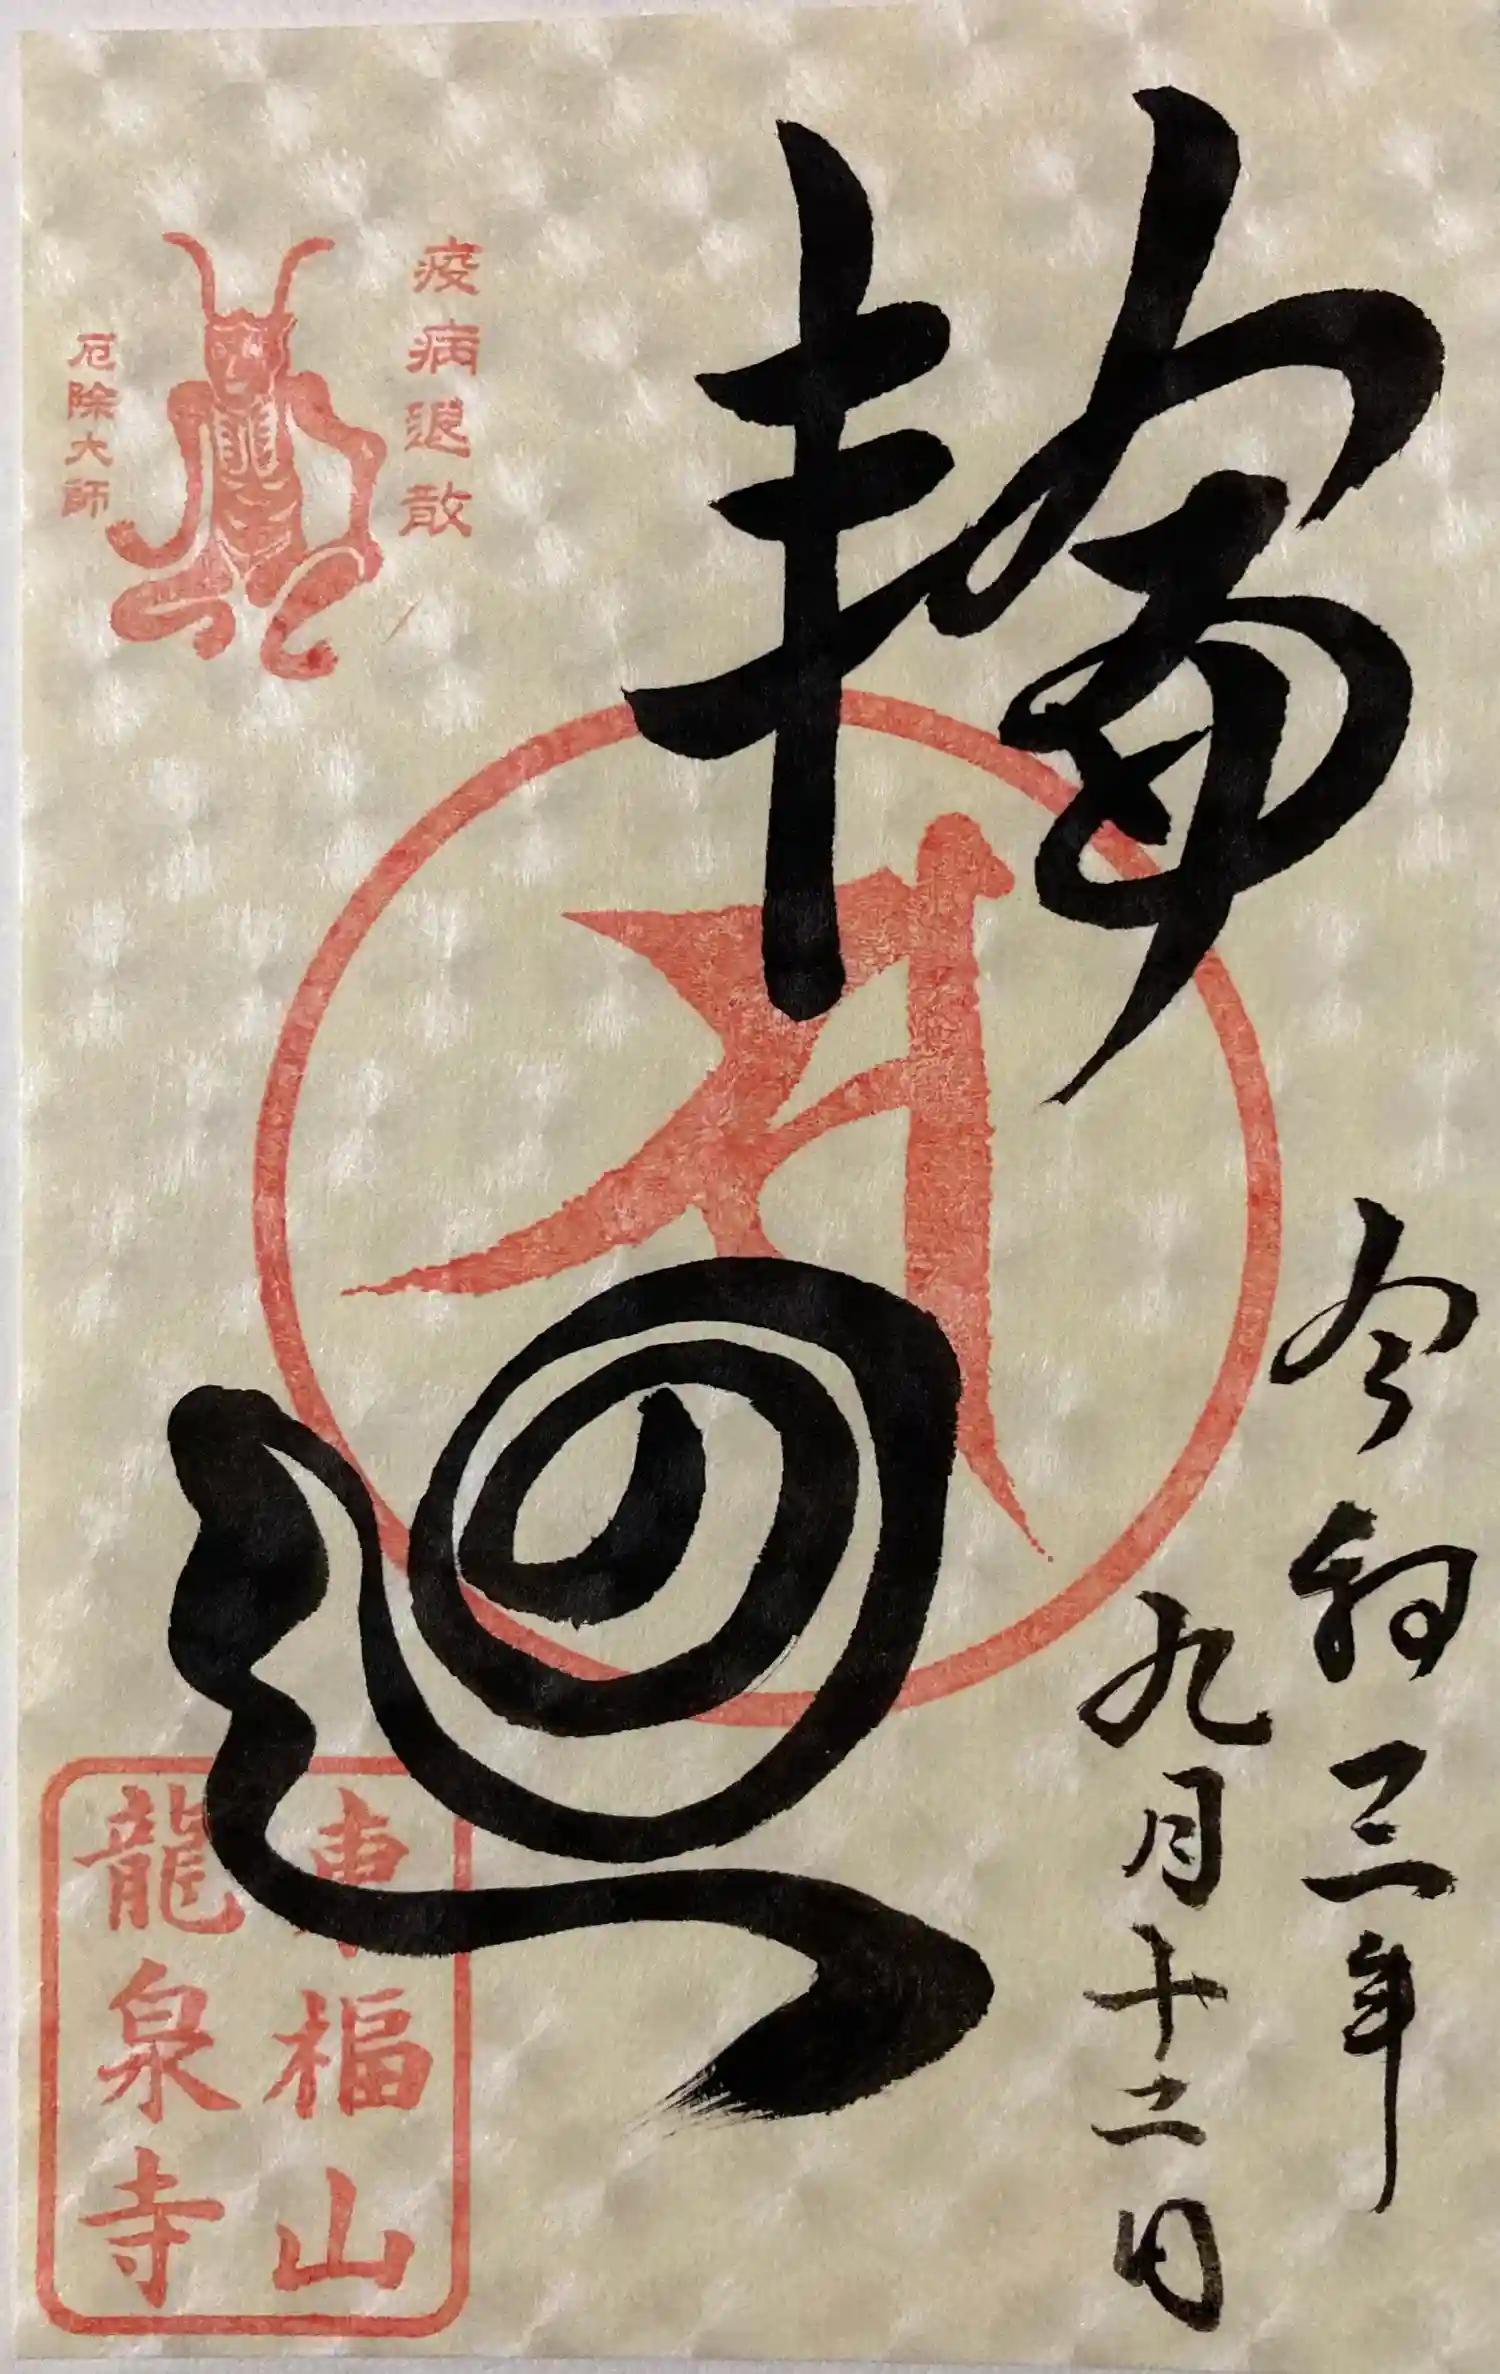 令和三年
九月十二日
輪廻
疫病退散
厄除大師
東福山
龍泉寺